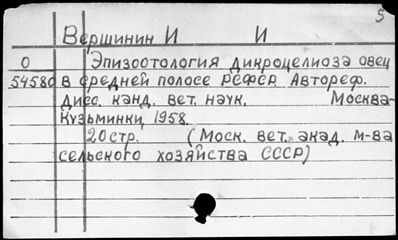 5
Вершинин И И
О Эпизоотология дикроцелиоза овец
54580 в средней полосе РСФСР. Автореф.
дисс. канд. вет. наук. Москва-
Кузьминки, 1958.
20стр. (Моск. вет. акад. м-ва
сельского хозяйства СССР)